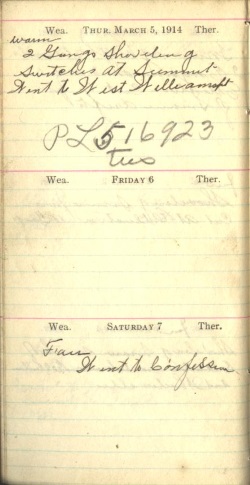 Wea. THUR. MARCH 5, 1914 Ther.
Warm
2 Gangs Shoveling
Switches at Summit
Went to West Williamsft
PL516923
Wea. FRIDAY 6 Ther.
Wea. SATURDAY 7 Ther.
Fair
Went to Confession